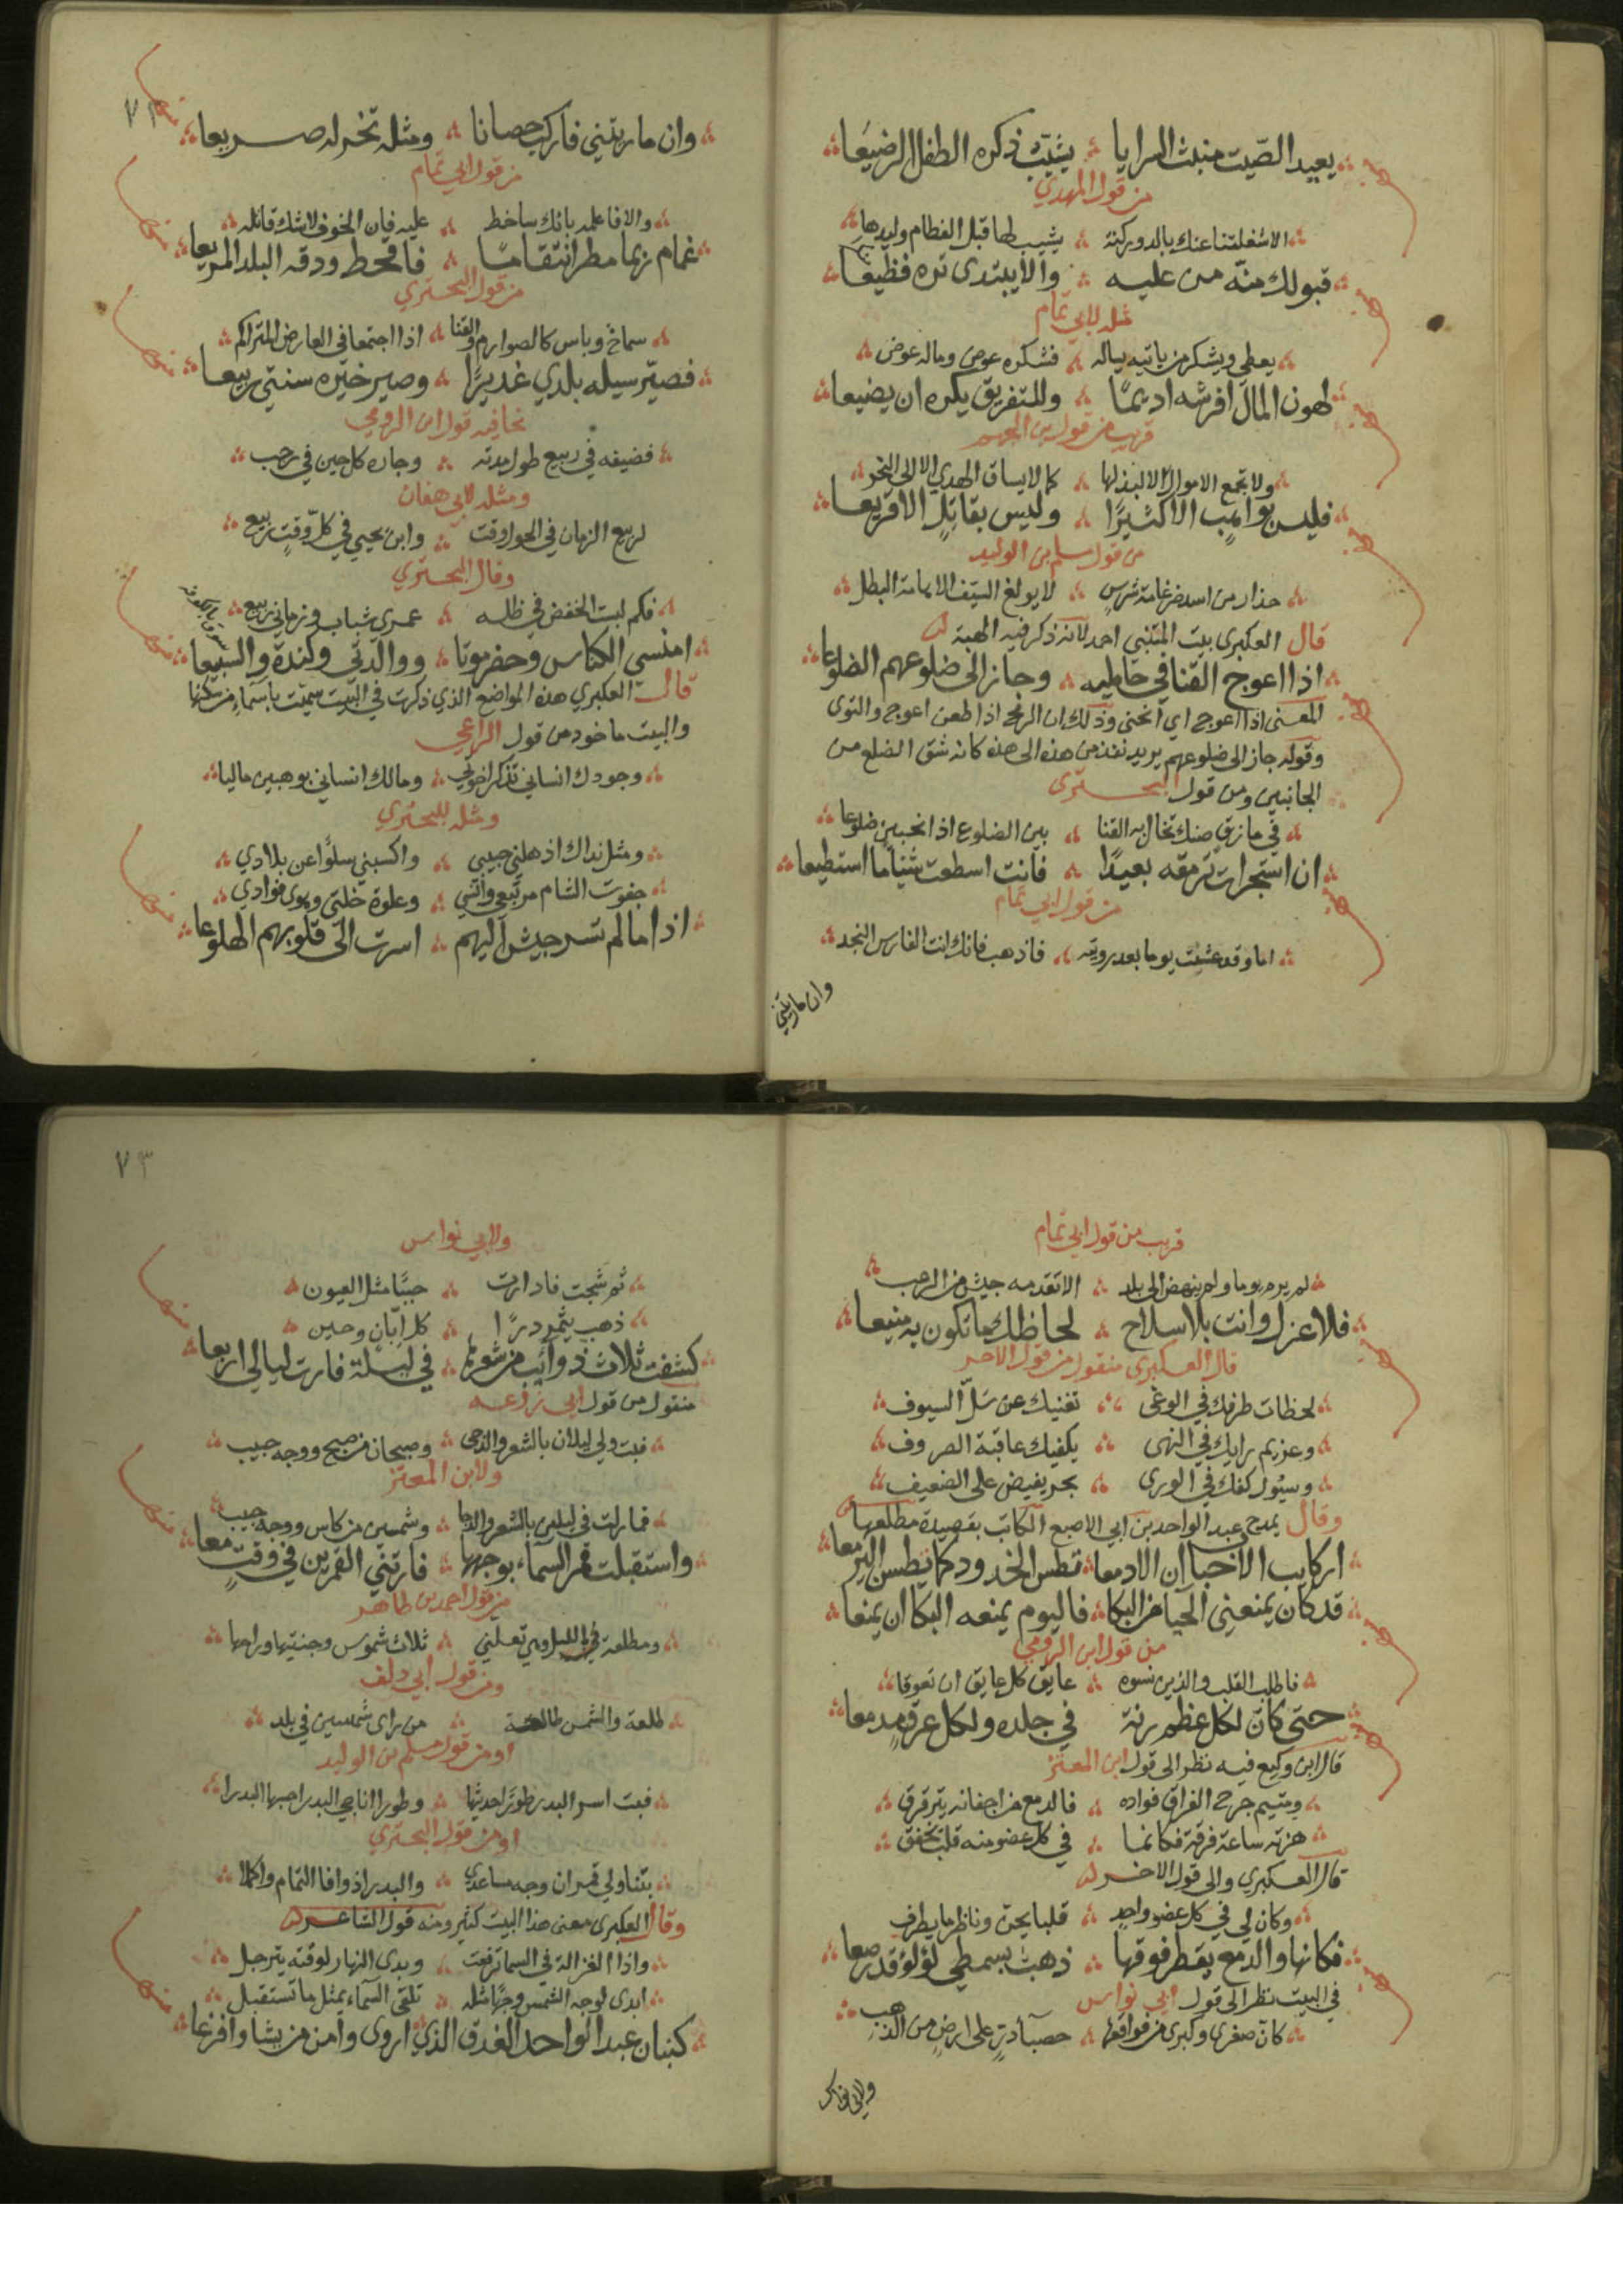 بعيد الصّيت منبث السرايا يشيّب ذكره الطفل الرضيعا
من قول المهدي
الا شغلتنا عنك يالدوركية يشيب لها قبل الفطام وليدها
قبولك منّه من عليه والا يبتدى تره فظيعا
مثله لابي تمّام
يعطي ويشكر من ياتيه يساله فشكره عوض وماله عوض
لهون المال افرشه اديمًا وللتفريق يكره ان يضيعا
قريب من قول بن الجهم
ولا تجمع الاموال الا لبذلها كما لا يساق الهدي الا الى النحر
فليس بواهبٍ الا كثيرًا وليس بقاتلٍ الا قريعا
من قول مسلم بن الوليد
حذار من اسد ضرغامة شرس لا يولغ السّيف الا هامة البطل
قال العكبري بيت المتنبي احمد لانه ذكر فيه الهبة
اذا اعوج القنا في حامليه وجاز الى ضلوعهم الضلوعا
المعنى اذا اعوج اي انحنى وذلك ان الرمح اذا طعن اعوج والتوى
وقوله جاز الى ضلوعهم يريد نفذ من هذه الى هذه كانه شق الضلع من
الجانبين ومن قول البحتري
في مازق ضنك تخال به القنا بين الضلوع اذا انحنين ضلوعا
ان استجرات ترمقه بعيدًا فانت اسطعت شيئا ما استطيعا
من قول ابي تمام
اما وقد عشت يوما بعد رويته فاذهب فانك انت الفارس النجد
وان ماريتني
٧٢
وان ماريتني فاركب حصانا ومثله تخر له صريعا
من قول ابي تمام
والا فاعلمه بانك ساخط عليه فان الخوف لا شك قاتله
غمام ربما مطر انتقامًا فاقحط ودقه البلد المريعا
من قول البحتري
سماح وباس كالصوارم والقنا اذا اجتمعا في العارض المتراكم
فصيّر سيله بلدي غديرًا وصير خيره سنتي ربيعا
نحا فيه قول ابن الرومي
فضيفه في ربيع طول مدته وجاره كل حين في رجب
ومثله لابي هفان
لربيع الزمان في الحول وقت وابن يحيي في كلّ وقتٍ ربيع
وقال البحتري
فكم لبست الخفض في ظله عمري شباب وزماني ربيع
امنسى الكناس وحضرموتا ووالدتي وكندة والسّبيعا
قال العكبري هذه المواضع الذي ذكرت في البيت سميت باسماء من سكنها
والبيت ماخود من قول الراعي
وجودك انساني تذكر اخوتي ومالك انساني بوهبين ماليا
ومثله للبحتري
ومثل نداك اذهلني حبيبي واكسبني سلوًا عن بلادي
جفوت الشام مرتبعي وانسي وعلوة خلتي وهوى فوادي
اذا ما لم تسر جيش اليهم اسرت الى قلوبهم الهلوعا
قريب من قول ابي تمام
لم يرم يوما ولم ينهض الى بلد الا تقدمه جيش من الرعب
فلا عزل وانت بلا سلاح لحاظك ما تكون به منيعا
قال العكبري منقول من قول الاخر
لحظات طرفك في الوغى تغنيك عن سَلّ السيوف
وعزيم رايك في النهى يكفيك عاقبة الصروف
وسيُول كفك في الورى بحر يفيض على الضعيف
وقال يمدح عبد الواحد بن ابي الاصبع الكاتب بقصيدة مطلعها
اركايب الاحباب ان الادمعا تطس الخدود كما تطسن اليرمعا
قد كان يمنعني الحيا من البكا فاليوم يمنعه البكا ان يمنعا
من قول ابن الرومي
عايق كل عايق ان تعوقا
حتى كان لكل عظم رنة في جلده ولكل عرقٍ مدمعا
قال ابن وكيع فيه نظر الى قول ابن المعتز
ومتيم جرح الفراق فواده فالدمع من اجفانه يترقرق
هزته ساعة فرقة فكانما في كل عضو منه قلبٌ تخفق
قال العكبري والى قول الاخر
وكان لي في كل عضو واحدٍ قلبا يحن وناظر ما يطرف
فكانها والدمع يقطر فوقها ذهبٌ بسمطي لؤلؤ قد رصعا
في البيت نظر الى قول ابي نواس
كان صغرى وكبرى من فواقعها حصبآ درٍ على ارضٍ من الذهب
ولابي نواس
٧٣
ولابي نواس
ثم شجت فادارت حببًا مثل العيون
ذهب يثمر درًا كل ابّانٍ وحين
كشفت ثلاث ذوآئب من شعرها في ليلة فارت ليالي اربعا
منقول من قول ابي زرعه
فبت ولي ليلان بالشعر والدجى وصبحان من صبح ووجه حبيب
ولابن المعتز
فمازلت في ليلين بالشعر والدجا وشمسين من كاس ووجه حبيب
واستقبلت قمر السمآء بوجهها فارتني القمرين في وقتٍ معا
من قول احمد بن طاهر
ثلاث شموس وجنتيها وراحها
ومن قول ابي دلف
طلعة والشمس طالعة من راى شمسين في بلد
او من قول مسلم بن الوليد
فبت اسر البدر طورًا حديثها وطورا اناجي البدر احسبها البدرا
او من قول البحتري
والبدر اذ وافا التمام واكملا
وقال العكبري معنى هذا البيت كثير ومنه قول الشاعر
واذا الغزالة في السما ترفعت وبدى النهار لوقته يترجل
ابدى لوجه الشمس وجهًا مثله تلقى السمآء بمثل ما تستقبل
كبنان عبد الواحد الغدق الذي اروى وآمن من يشا وافزعا